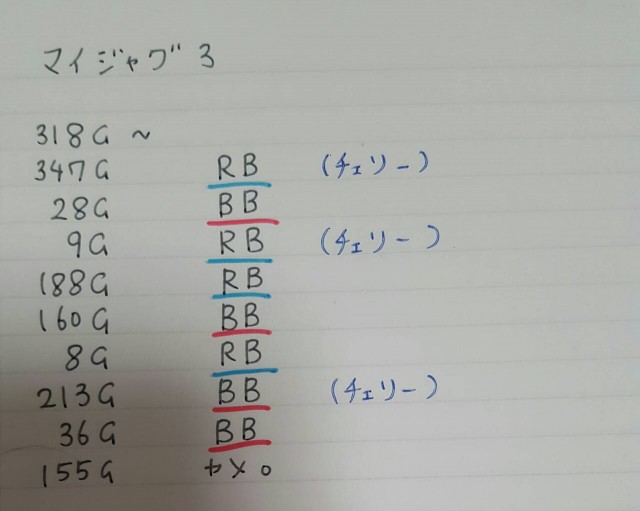 マイジャグ3
318G ~
347G RB (チェリー)
28G BB
9G RB (チェリー)
188G RB
160G BB
8G RB
213G BB (チェリー)
36G BB
155G ヤメ。